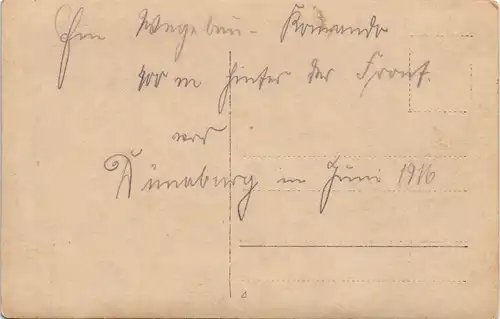 Ein Wegebau-Komando
400 m hinter der Front.
vor
Dünaburg im Juni 1916